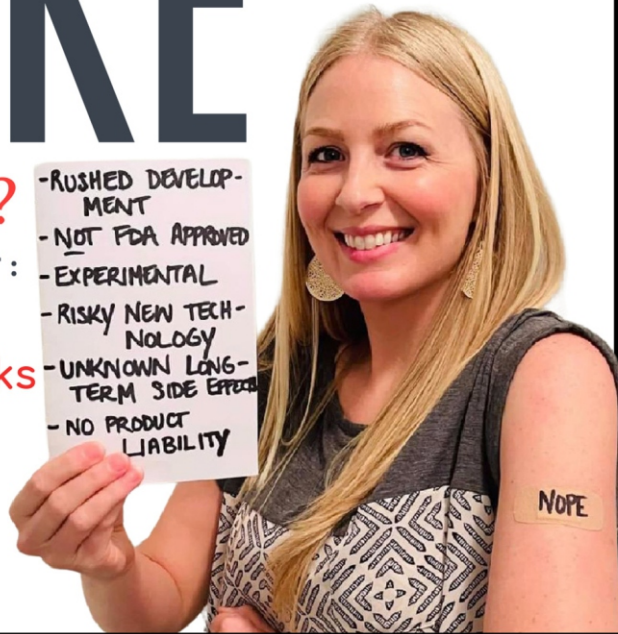 KE
?
:
-RUSHED DEVELOP-
MENT
- NOT FDA APPROVED
- EXPERIMENTAL
- RISKY NEW TECH-
NOLOGY
-UNKNOWN LONG-
TERM SIDE EFFECTS
- NO PRODUCT
LIABILITY
ks
NOPE